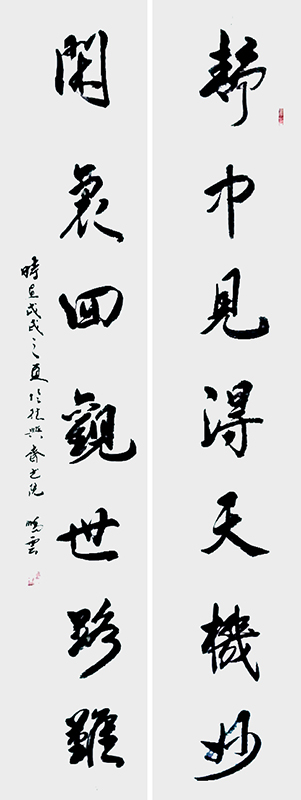 靜中見得天機妙
閑裏回觀世路難
時在戊戌之夏 曉雲